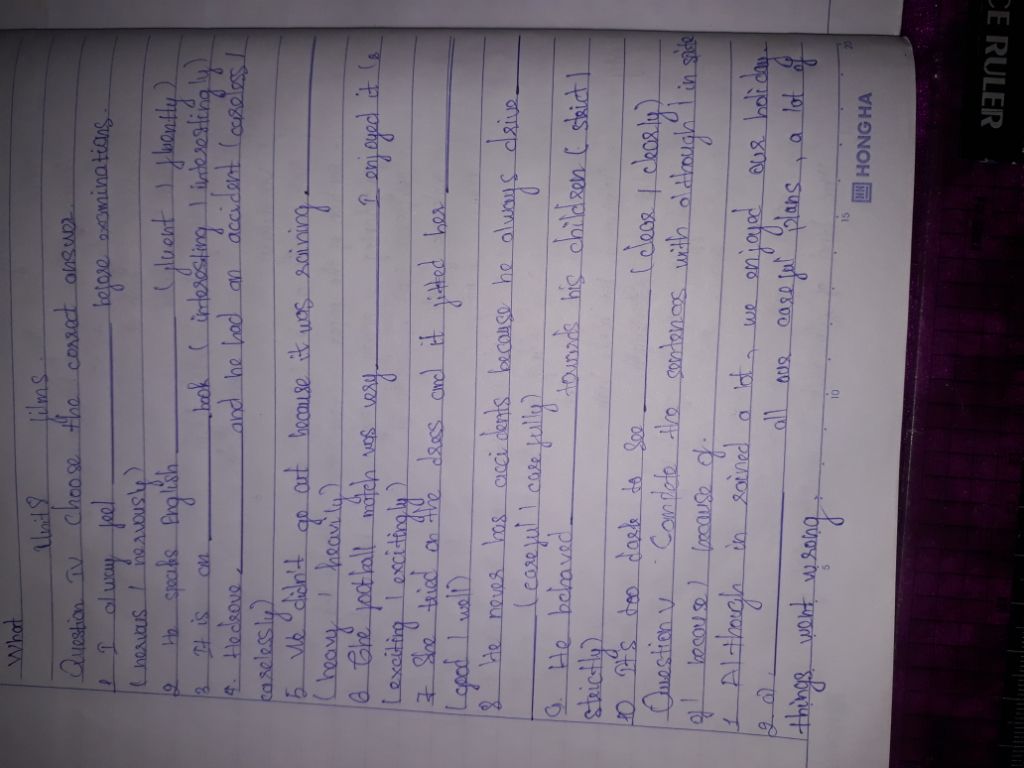 What
Unit8 films
Question IV Choose the correct answer.
1 I alway feel ______ before examinations.
(nervous / nervously)
2 He speaks English ______ (fluent / fluently)
3 It is an ______ book (interesting / interestingly)
4. Hedrove ______ and he had an accident (careless /
carelessly)
5 We didn't go out because it was raining ______
(heavy / heavily)
6 The football match was very ______ I enjoyed it (s
(exciting / excitingly)
7 She tried on the dress and it fitted her ______
(good / well)
8 He never has accidents because he always drive
______ (careful / carefully)
9. He behaved ______ towards his children (strict /
strictly)
10 It's too dark to see ______ (clear / clearly)
Question V Complete the sentences with although / in spite
of / because / because of.
1 Although in rained a lot, we enjoyed our holiday
2 a) ______ all our careful plans, a lot of
things went wrong
5 10 15 20
HONGHA
CE RULER